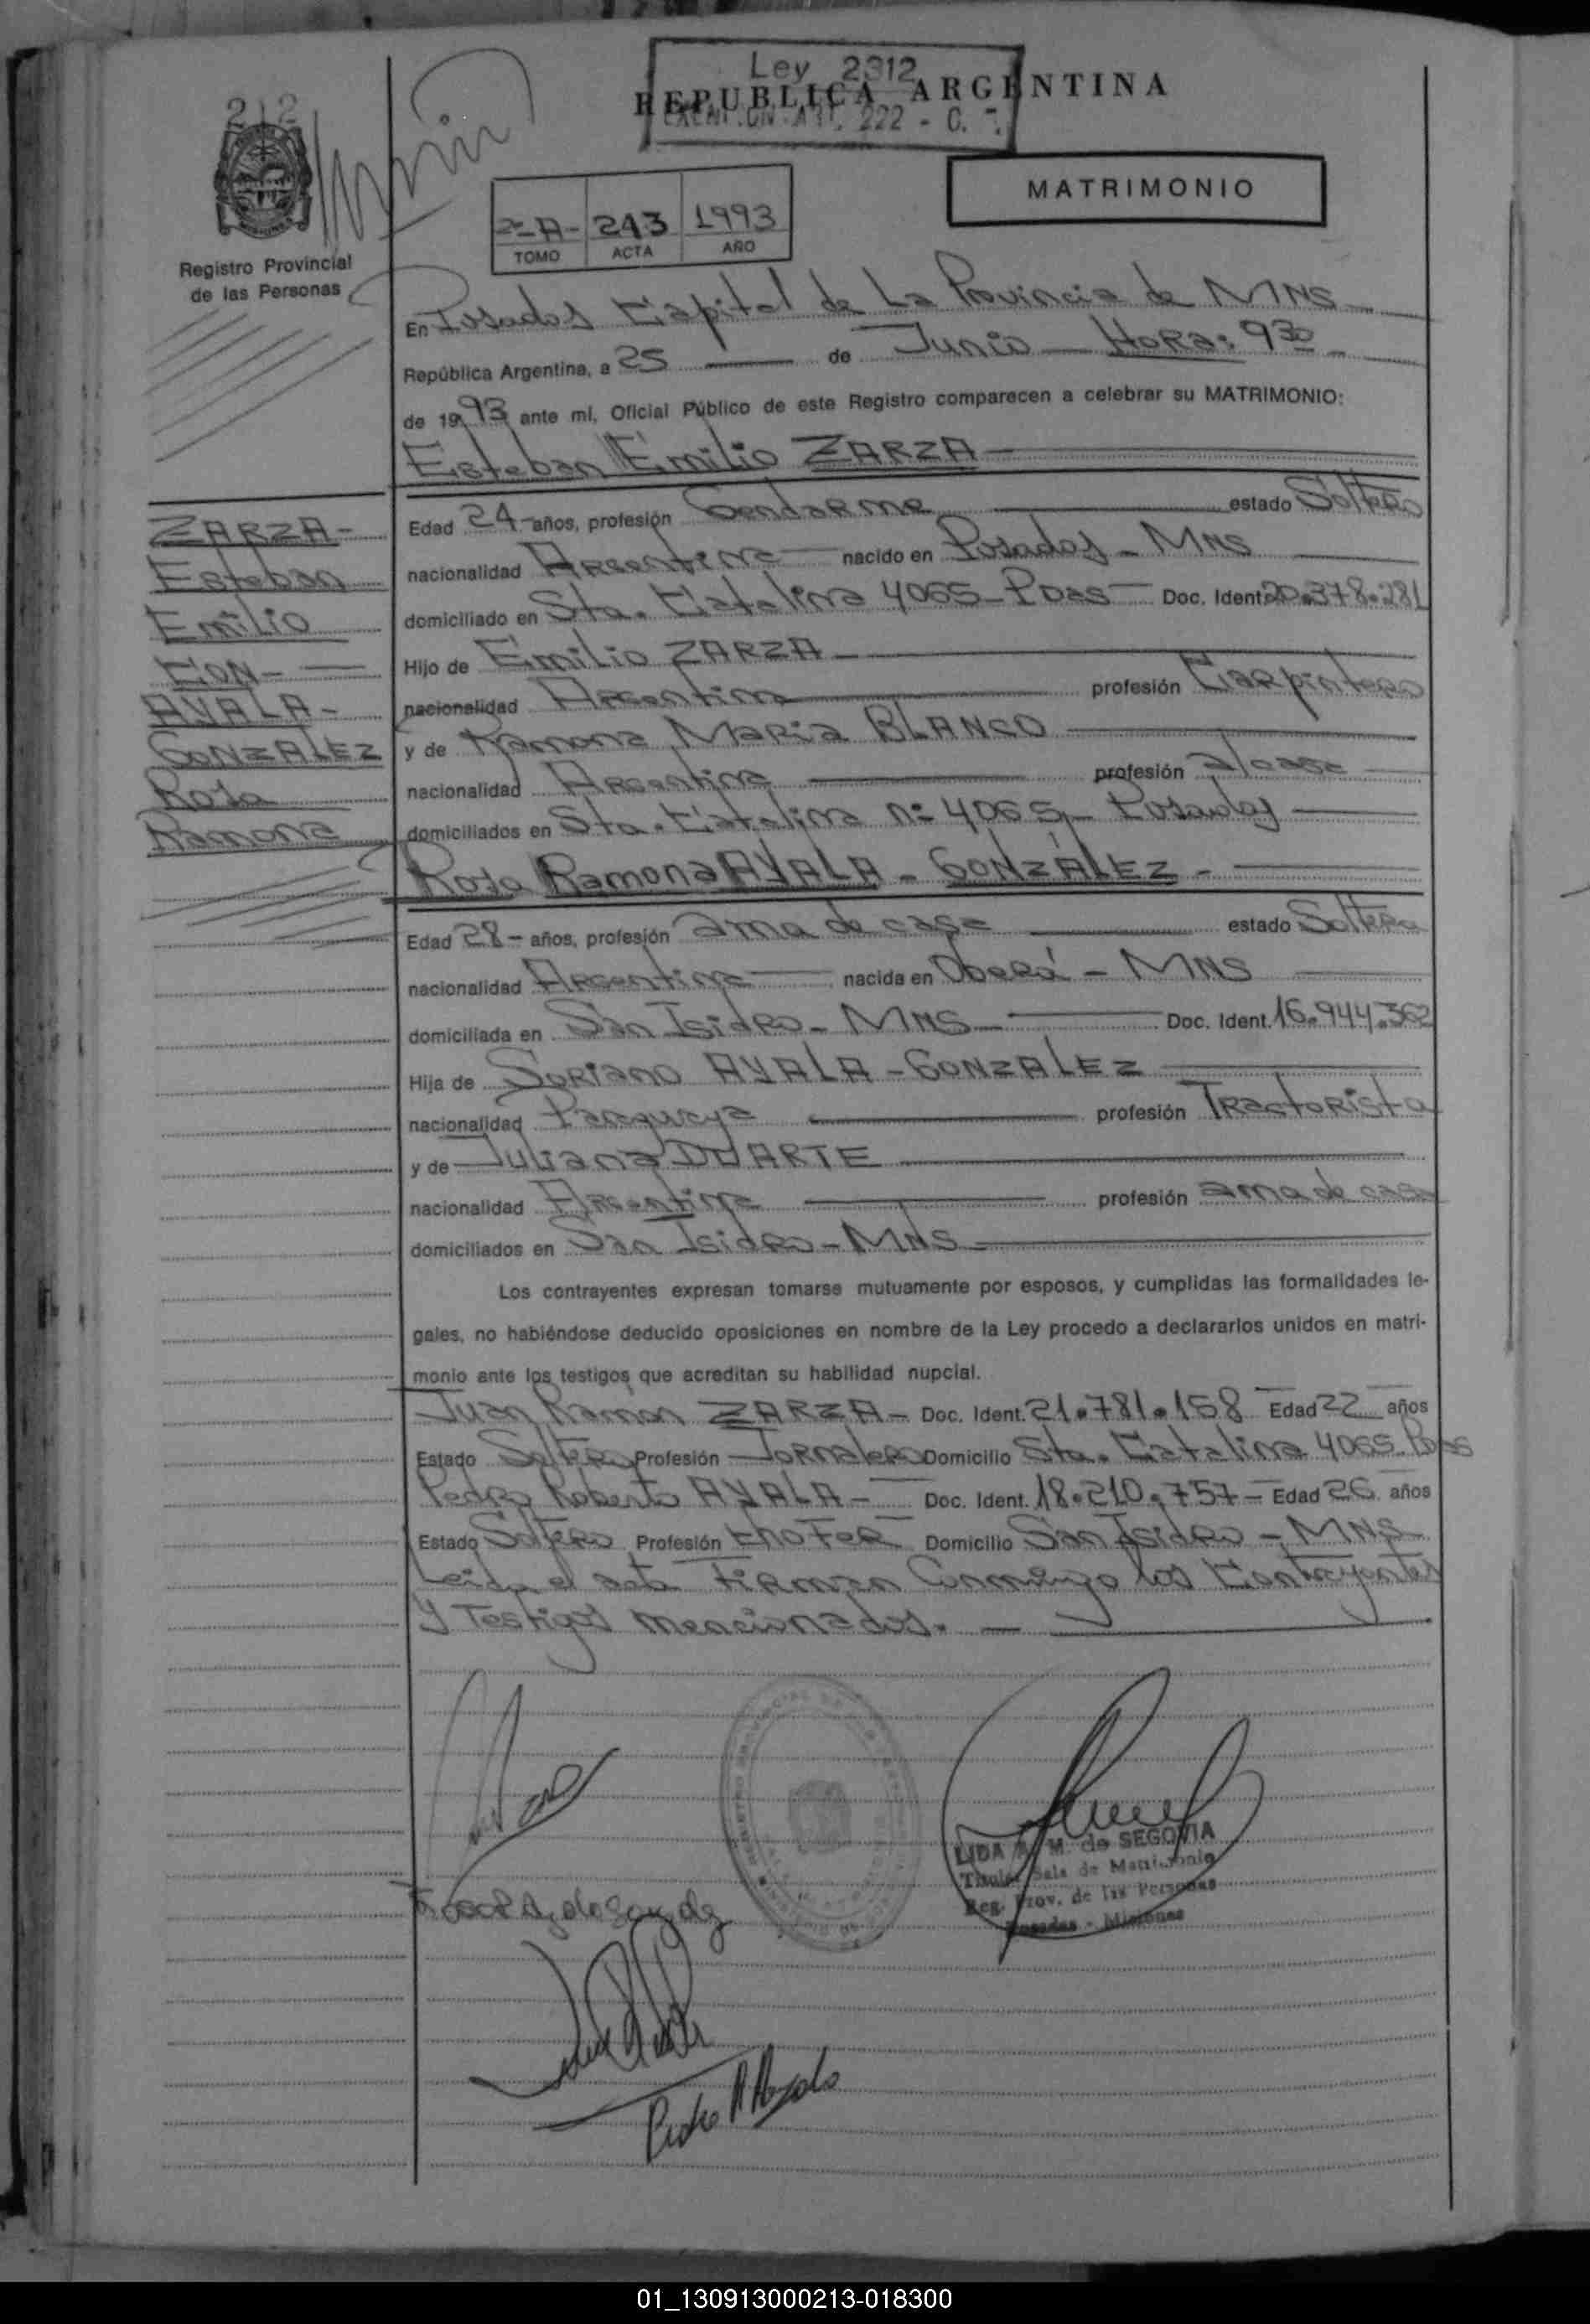 Ley 2312
REPUBLICA ARGENTINA
EXENCION ART. 222 - C.
212
MATRIMONIO
2º-A- 243 1993
TOMO ACTA AÑO
Registro Provincial
de las Personas
En Posadas Capital de La Provincia de MNS
República Argentina, a 25 de Junio Hora: 9 30
de 1993 ante mí, Oficial Público de este Registro comparecen a celebrar su MATRIMONIO:
Esteban Emilio ZARZA
Edad 24 años, profesión Gendarme estado Soltero
nacionalidad Argentina nacido en Posadas - MNS
domiciliado en Sta. Catalina 4065 - Pdas Doc. Ident. 20.378.281
Hijo de Emilio ZARZA
nacionalidad Argentina profesión Carpintero
y de Ramona Maria BLANCO
nacionalidad Argentina profesión a/casa
domiciliados en Sta. Catalina nº 4065 - Posadas
Rosa Ramona AYALA - GONZÁLEZ -
ZARZA -
Esteban
Emilio
CON -
AYALA -
GONZALEZ
Rosa
Ramona
Edad 28 - años, profesión ama de casa estado Soltera
nacionalidad Argentina nacida en Oberá - MNS
domiciliada en San Isidro - MNS Doc. Ident. 16.944.362
Hija de Soriano AYALA - GONZALEZ
nacionalidad Paraguaya profesión Tractorista
y de Juliana DUARTE
nacionalidad Argentina profesión ama de casa
domiciliados en San Isidro - MNS
Los contrayentes expresan tomarse mutuamente por esposos, y cumplidas las formalidades le-
gales, no habiéndose deducido oposiciones en nombre de la Ley procedo a declararlos unidos en matri-
monio ante los testigos que acreditan su habilidad nupcial.
Juan Ramon ZARZA - Doc. Ident. 21.781.158 Edad 22 años
Estado Soltero Profesión Jornalero Domicilio Sta. Catalina 4065 - Pdas
Pedro Roberto AYALA - Doc. Ident. 18.210.757 - Edad 26 años
Estado Soltero Profesión Chofer Domicilio San Isidro - MNS
Leida el acta Firman Conmigo los Contrayentes
y Testigos mencionados. -
LIDA A. M. de SEGOVIA
Titular Sala de Matrimonio
Reg. Prov. de las Personas
Posadas - Misiones
01_130913000213-018300